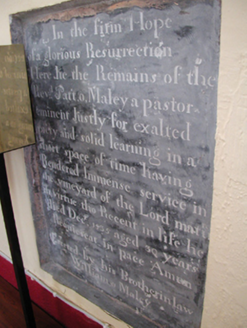 In the firm Hope
glorious Resurrection
Here lie the Remains of the
Revd Patt. o Maley a pastor
eminent justly for exalted
piety and solid learning in a
short space of time having
Rendered Immense service in
the vineyard of the Lord
the Regent in life he
Died Decr aged years
Requiescat in pace Amen
Erected by his Brother in law
Maley